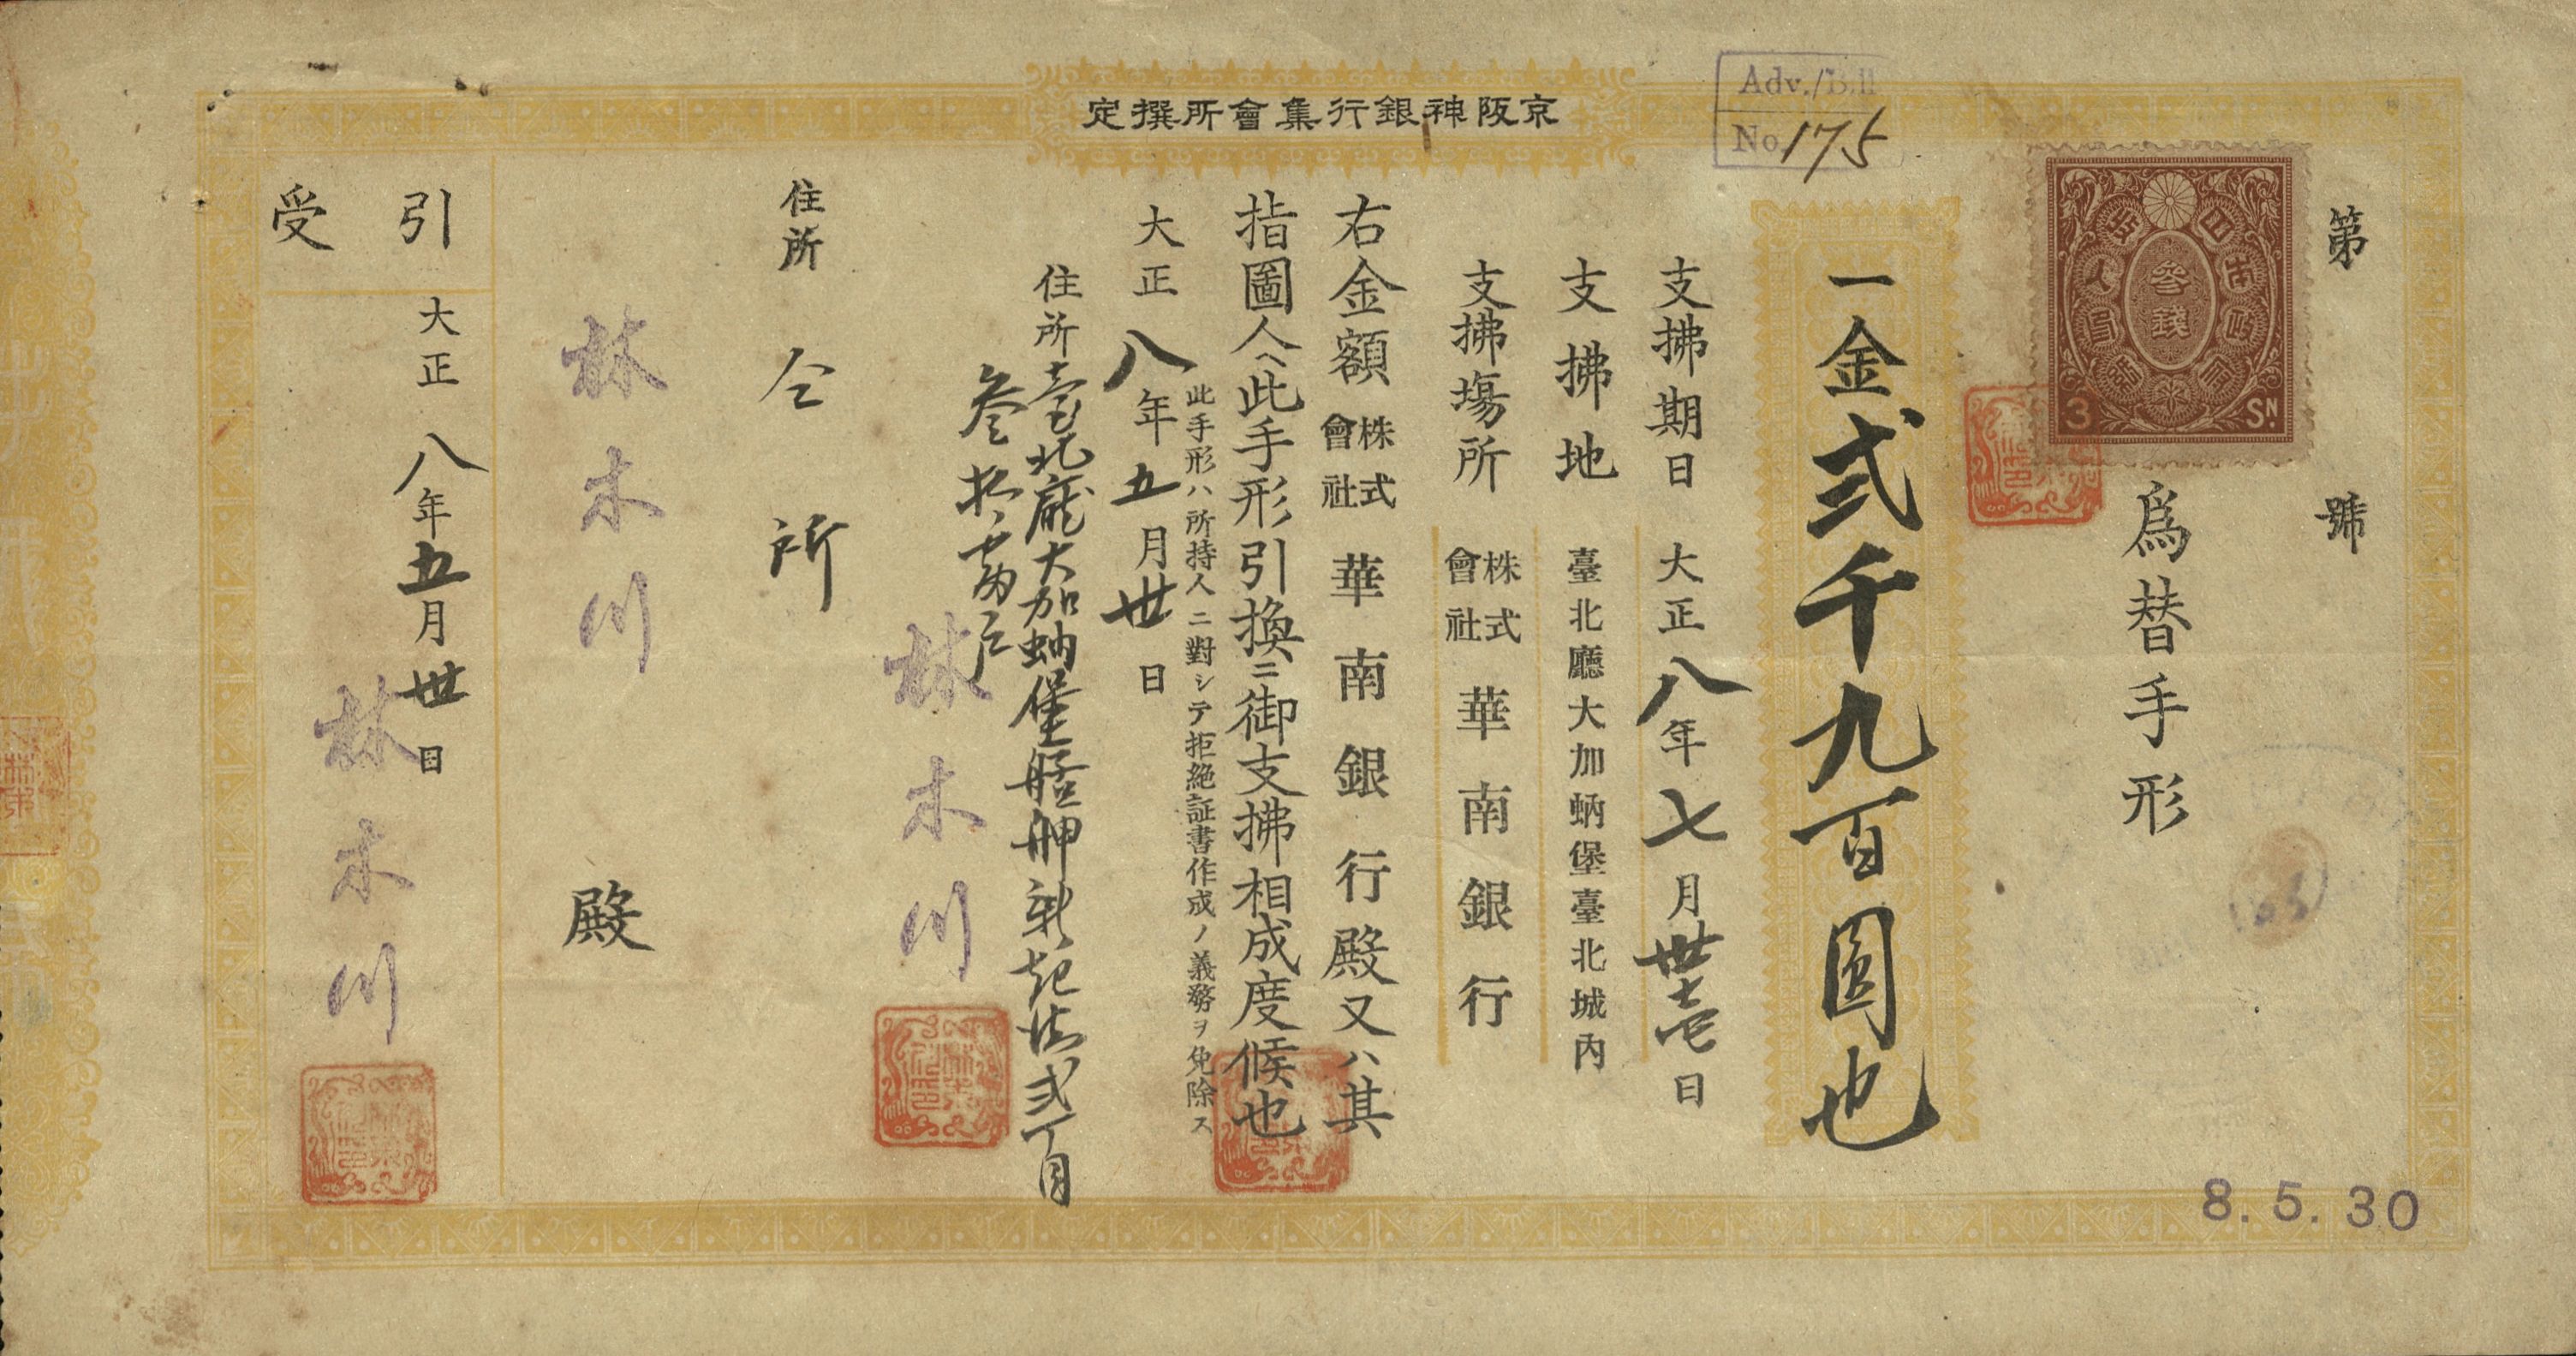 定撰所會集行銀神阪京
Adv./Bill
No. 175
第 號
爲替手形
日本帝國政府
收入印紙
參錢
3 Sɴ.
一金貳千九百圓也
支拂期日 大正八年七月卅壱日
支拂地 臺北廳大加蚋堡臺北城內
支拂塲所 株式會社 華南銀行
右金額株式會社 華南銀行殿又ハ其
指圖人へ此手形引換ニ御支拂相成度候也
此手形ハ所持人ニ對シテ拒絶証書作成ノ義務ヲ免除ス
大正八年五月卅日
住所 臺北廳大加蚋堡艋舺新起街弍丁目
叁拾番戶
林木川
住所 仝所
林木川 殿
引受
大正八年五月卅日
林木川
8.5.30